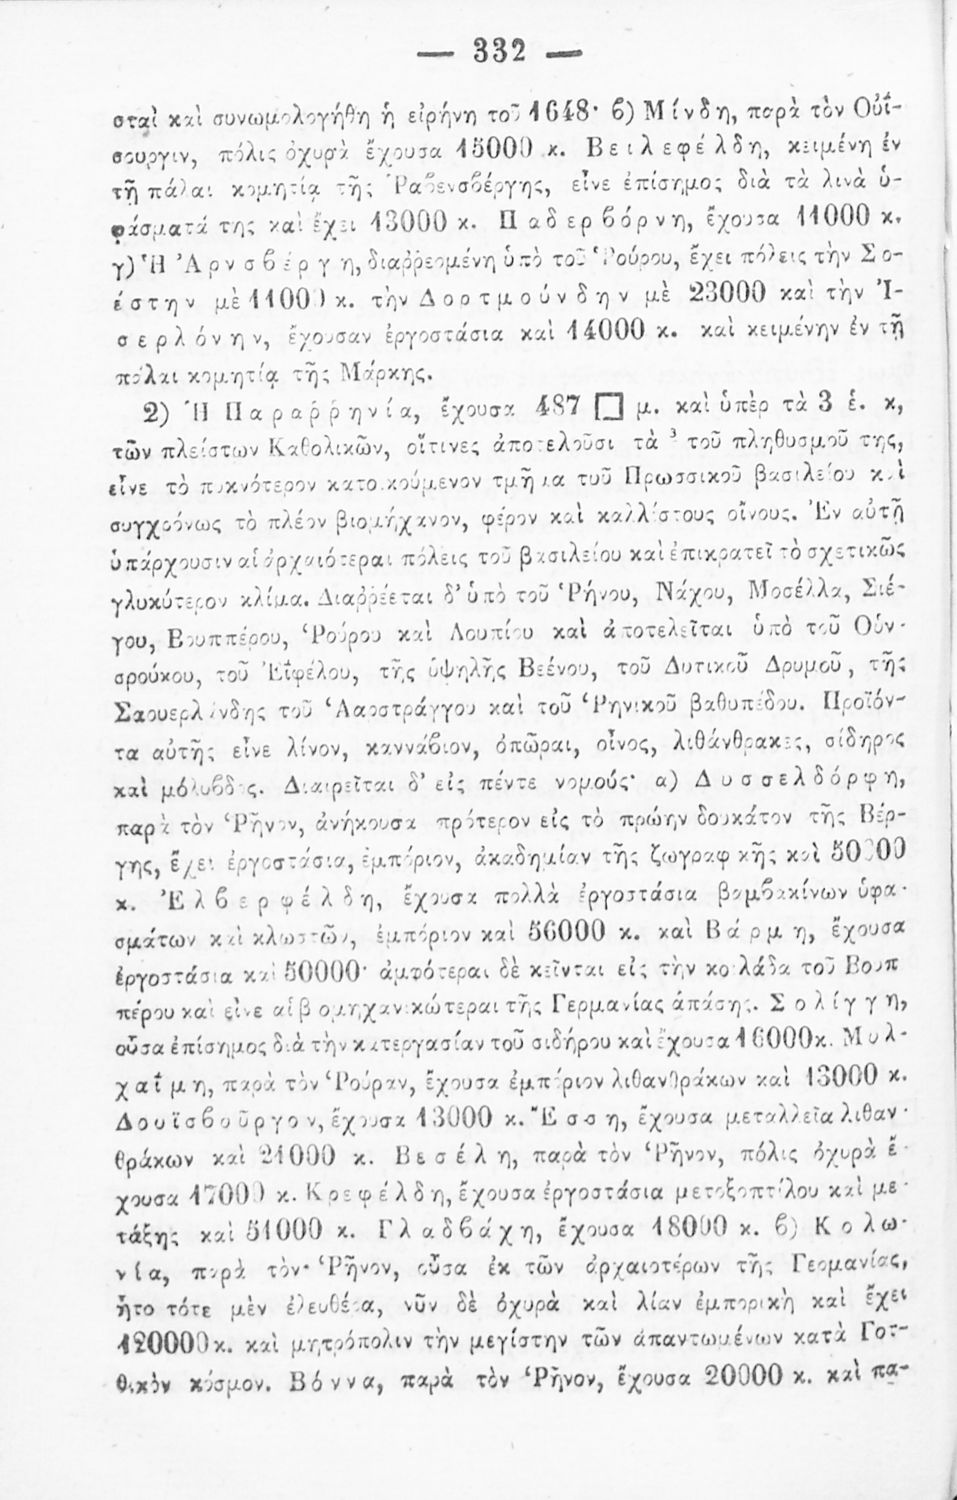 — 332 —
σταὶ καὶ συνωμολογήθη ἡ εἰρήνη τοῦ 1648· ϐ) Μίνδη, παρὰ τὸν Οὐΐ-
σουργιν, πόλις ὀχυρὰ ἔχουσα 15000 κ. Βειλεφέλδη, κειμένη ἐν
τῇ πάλαι κομητίᾳ τῆς Ῥαϐενσϐέργης, εἶνε ἐπίσημος διὰ τὰ λινὰ ὑ-
φάσματά της καὶ ἔχει 13000 κ. Παδερϐόρνη, ἔχουσα 11000 κ.
γ) Ἡ Ἀρνσϐέργη, διαῤῥεομένη ὑπὸ τοῦ Ῥούρου, ἔχει πόλεις τὴν Σο-
έστην μὲ 11000 κ. τὴν Δορτμούνδην μὲ 23000 καὶ τὴν Ἰ-
σερλόνην, ἔχουσαν ἐργοστάσια καὶ 14000 κ. καὶ κειμένην ἐν τῇ
πάλαι κομητίᾳ τῆς Μάρκης.
2) Ἡ Παραῤῥηνία, ἔχουσα 487 □ μ. καὶ ὑπὲρ τὰ 3 ἑ. κ,
τῶν πλείστων Καθολικῶν, οἵτινες ἀποτελοῦσι τὰ ³ τοῦ πληθυσμοῦ της,
εἶνε τὸ πυκνότερον κατοικούμενον τμῆμα τοῦ Πρωσσικοῦ βασιλείου καὶ
συγχρόνως τὸ πλέον βιομήχανον, φέρον καὶ καλλίστους οἴνους. Ἐν αὐτῇ
ὑπάρχουσιν αἱ ἀρχαιότεραι πόλεις τοῦ βασιλείου καὶ ἐπικρατεῖ τὸ σχετικῶς
γλυκύτερον κλίμα. Διαῤῥέεται δ' ὑπὸ τοῦ Ῥήνου, Νάχου, Μοσέλλα, Σιέ-
γου, Βουππέρου, Ῥούρου καὶ Λουπίου καὶ ἀποτελεῖται ὑπὸ τοῦ Οὑν-
σρούκου, τοῦ Ἐϊφέλου, τῆς ὑψηλῆς Βεένου, τοῦ Δυτικοῦ Δρυμοῦ, τῆς
Σαουερλάνδης τοῦ Ἁαρστράγγου καὶ τοῦ Ῥηνικοῦ βαθυπέδου. Προϊόν-
τα αὐτῆς εἶνε λίνον, καννάϐιον, ὀπῶραι, οἶνος, λιθάνθρακες, σίδηρος
καὶ μόλυϐδος. Διαιρεῖται δ' εἰς πέντε νομούς· α) Δυσσελδόρφη,
παρὰ τὸν Ῥῆνον, ἀνήκουσα πρότερον εἰς τὸ πρώην δουκάτον τῆς Βέρ-
γης, ἔχει ἐργοστάσια, ἐμπόριον, ἀκαδημίαν τῆς ζωγραφικῆς καὶ 50000
κ. Ἐλϐερφέλδη, ἔχουσα πολλὰ ἐργοστάσια βαμϐακίνων ὑφα-
σμάτων καὶ κλωστῶν, ἐμπόριον καὶ 56000 κ. καὶ Βάρμη, ἔχουσα
ἐργοστάσια καὶ 50000· ἀμφότεραι δὲ κεῖνται εἰς τὴν κοιλάδα τοῦ Βουπ
πέρου καὶ εἶνε αἱ βιομηχανικώτεραι τῆς Γερμανίας ἁπάσης. Σολίγγη,
οὖσα ἐπίσημος διὰ τὴν κατεργασίαν τοῦ σιδήρου καὶ ἔχουσα 16000 κ. Μυλ-
χαΐμη, παρὰ τὸν Ῥούραν, ἔχουσα ἐμπόριον λιθανθράκων καὶ 13000 κ.
Δουϊσϐοῦργον, ἔχουσα 13000 κ. Ἔσση, ἔχουσα μεταλλεῖα λιθαν-
θράκων καὶ 21000 κ. Βεσέλη, παρὰ τὸν Ῥῆνον, πόλις ὀχυρὰ ἔ-
χουσα 17000 κ. Κρεφέλδη, ἔχουσα ἐργοστάσια μεταξοπτίλου καὶ με-
τάξης καὶ 51000 κ. Γλαδϐάχη, ἔχουσα 18000 κ. ϐ) Κολω-
νία, παρὰ τὸν Ῥῆνον, οὖσα ἐκ τῶν ἀρχαιοτέρων τῆς Γερμανίας,
ἦτο τότε μὲν ἐλευθέρα, νῦν δὲ ὀχυρὰ καὶ λίαν ἐμπορικὴ καὶ ἔχει
120000 κ. καὶ μητρόπολιν τὴν μεγίστην τῶν ἀπαντωμένων κατὰ Γοτ-
θικὸν κόσμον. Βόννα, παρὰ τὸν Ῥῆνον, ἔχουσα 20000 κ. καὶ πα-